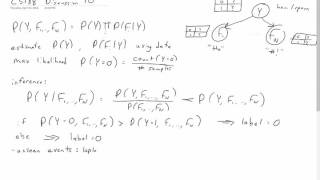 CS188 Discussion 10
P(Y, F₁, ..., Fₙ) = P(Y) ∏ P(Fᵢ|Y)
estimate P(Y), P(Fᵢ|Y) using data
max likelihood P(Y=0) = count(Y=0) / # samples
inference:
P(Y|F₁, ..., Fₙ) = P(Y, F₁, ..., Fₙ) / P(F₁, ..., Fₙ) ∝ P(Y, F₁, ..., Fₙ)
if P(Y=0, F₁, ..., Fₙ) > P(Y=1, F₁, ..., Fₙ) ⟹ label=0
else ⟹ label=0
-unseen events: lapl
Y
ham/spam
F₁
Fₙ